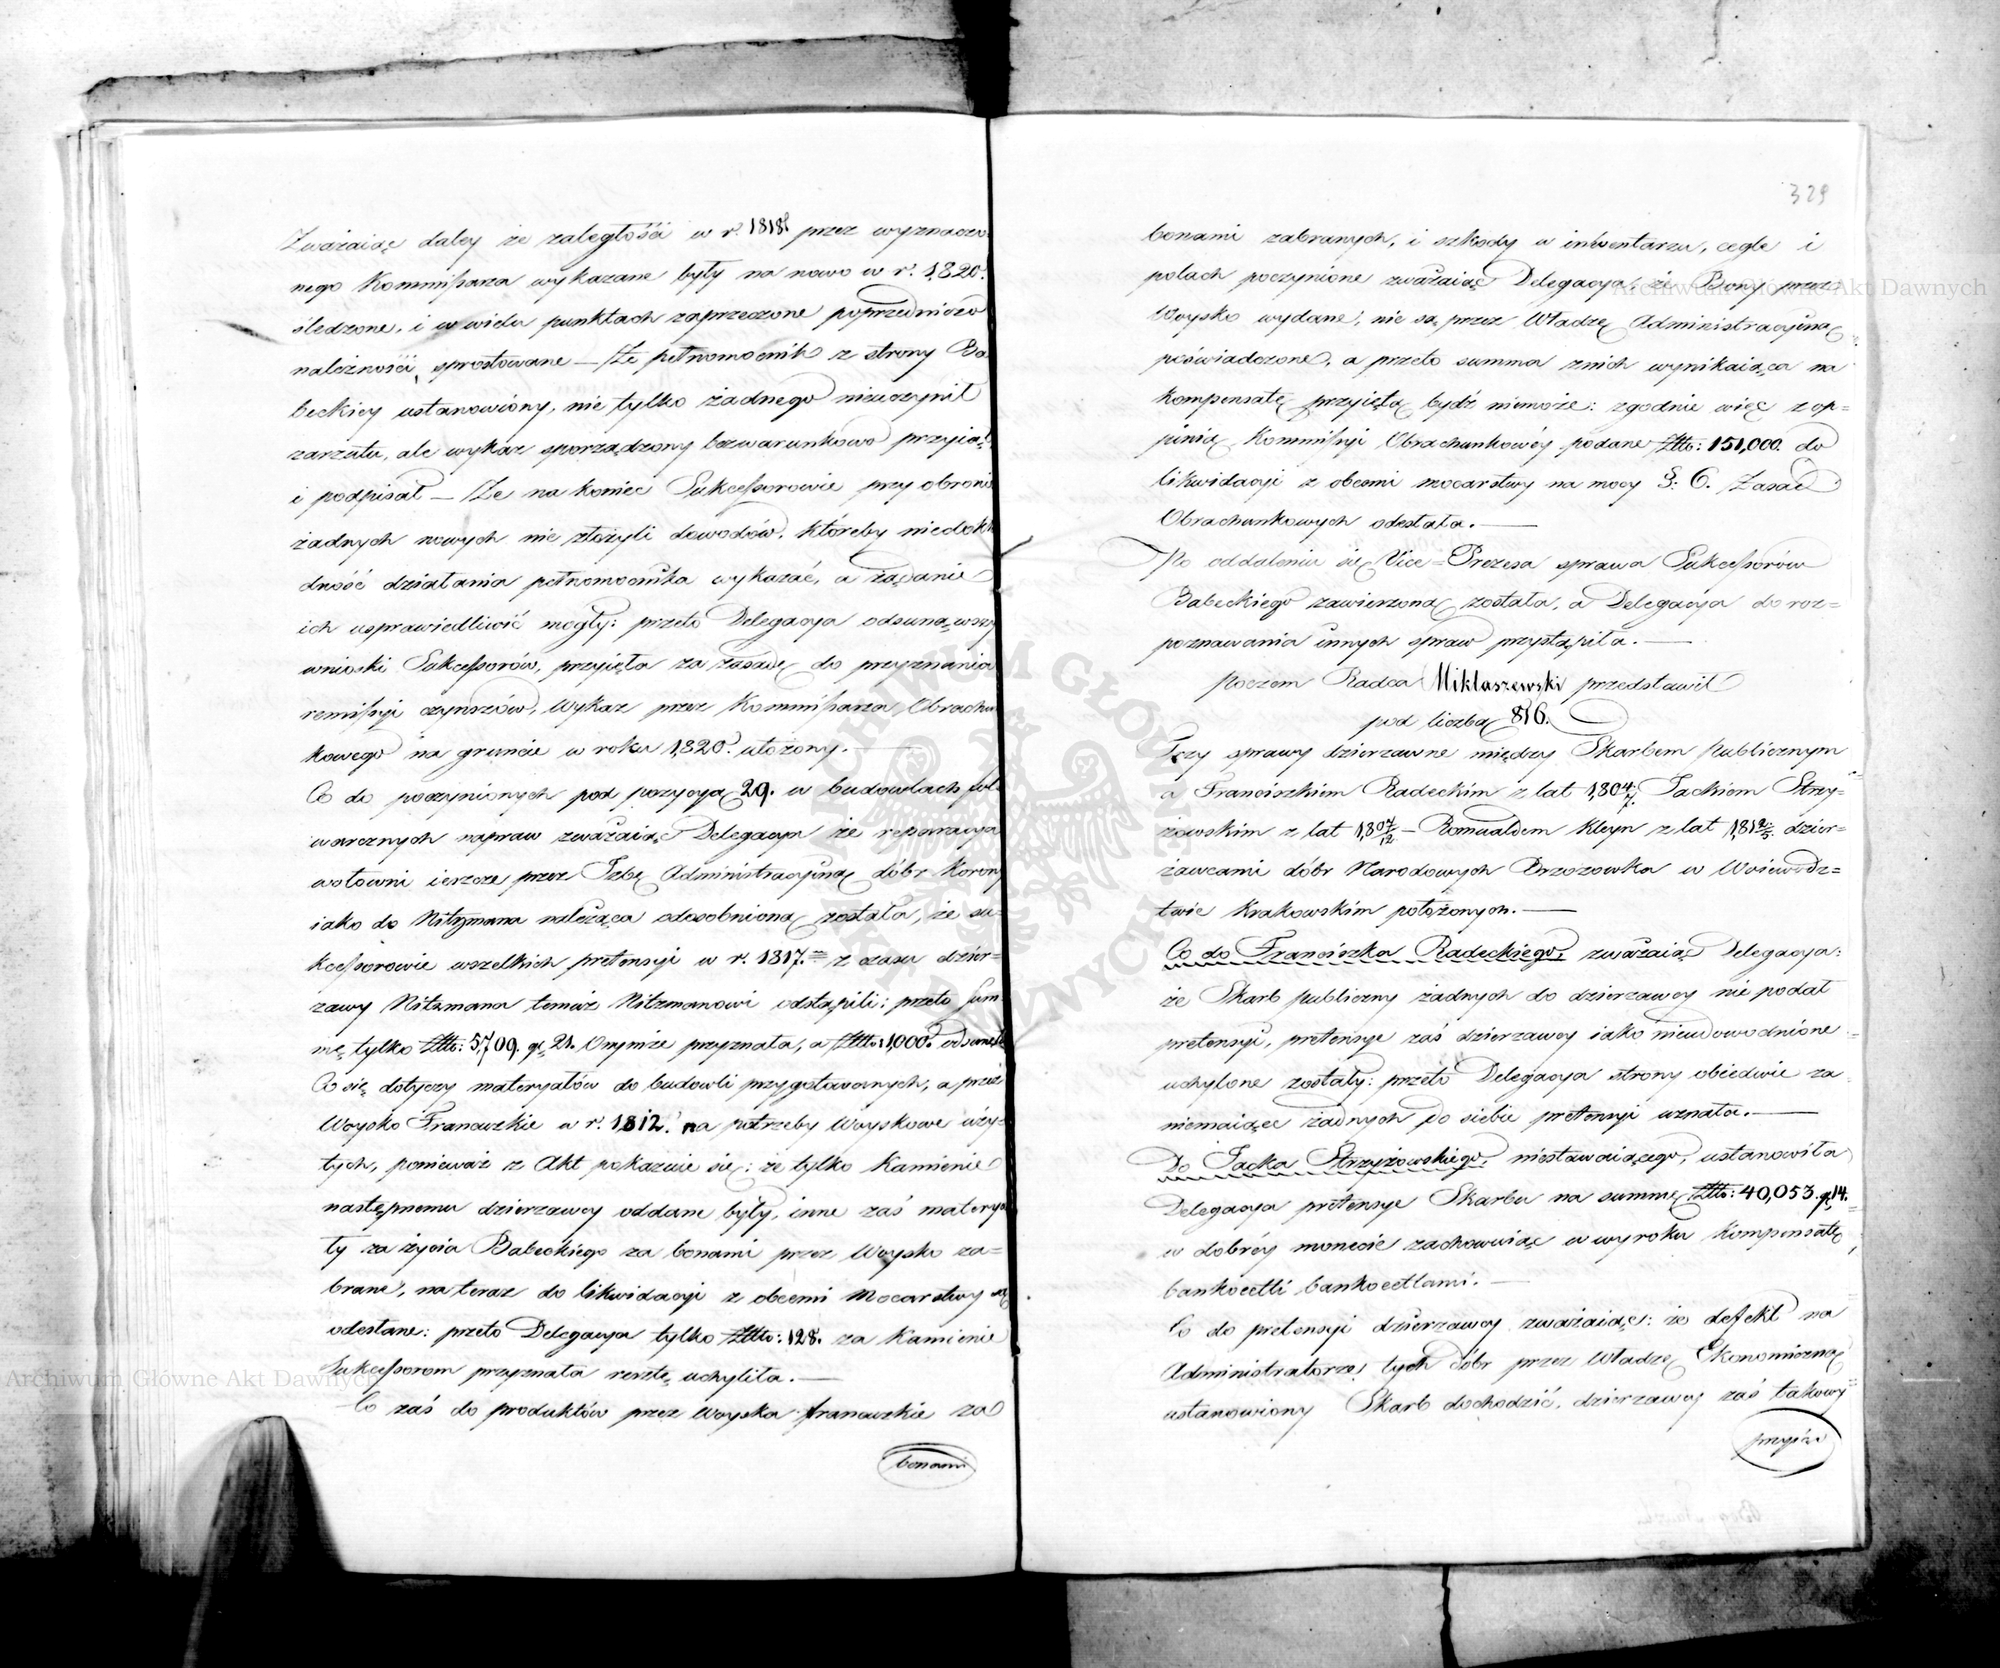 Zważaiąc daley że zaległości w r. 1818 przez wyznaczo-
nego Kommissarza wykazane były na nowo w r. 1820.
śledzone, i w wielu punktach zaprzeczone poprzedniczo
należności sprostowane — Że pełnomocnik z strony Ba
beckiey ustanowiony, nie tylko żadnego nieuczynił
zarzutu, ale wykaz sporządzony bezwarunkowo przyiął
i podpisał — Że na koniec Sukcessorowie przy obronie
żadnych nowych nie złożyli dowodów, któreby niedokła
dność działania pełnomocnika wykazać, a żądanie
ich usprawiedliwić mogły: przeto Delegacya odsunąwszy
wnioski Sukcessorów, przyięła za zasadę do przyznania
remissyi czynszów, Wykaz przez Kommissarza Obrachun
kowego na gruncie w roku 1820. ułożony. —
Co do poczynionych pod pozycyą 29. w budowlach fol-
warcznych napraw zważaiąc Delegacya że reparacya
wołowni ieszcze przez Izbę Administracyiną dóbr Korony
iako do Nitzmana należąca odosobnioną została, że su-
kcessorowie wszelkich pretensyi w r. 1817. z czasu dzier-
żawy Nitzmana temuż Nitzmanowi odstąpili: przeto Sum-
mę tylko Złto: 5,709. gr. 21. Onymże przyznała, a Złto: 1,000. odsunęła
Co się dotyczy materyałów do budowli przygotowanych, a przez
Woysko Francuzkie w r. 1812. na potrzeby Woyskowe uży-
tych, ponieważ z Akt pokazuie się: że tylko Kamienie
następnemu dzierżawcy oddane były, inne zaś materya
ły za życia Babeckiego za bonami przez Woysko za-
brane, na teraz do likwidacyi z obcemi Mocarstwy są
odesłane: przeto Delegacya tylko Złto: 128. za Kamienie
Sukcessorom przyznała resztę uchyliła. —
Co zaś do produktów przez Woyska francuzkie za
bonami
329
bonami zabranych, i szkody w inwentarzu, cegle i
polach poczynione zważaiąc Delegacya, że Bony przez
Woysko wydane, nie są przez Władzę Administracyiną
poświadczone, a przeto summa znich wynikaiąca na
kompensatę przyiętą bydź niemoże: zgodnie więc z op-
piniią Kommissyi Obrachunkowéy podane Złto: 151,000. do
likwidacyi z obcemi mocarstwy na mocy §: 6. Zasad
Obrachunkowych odesłała. —
Po oddaleniu się Vice-Prezesa sprawa Sukcessorów
Babeckiego zawierzoną została, a Delegacya do roz-
poznawania innych spraw przystąpiła. —
Poczem Radca Miklaszewski przedstawił
pod liczbą 816.
Trzy sprawy dzierżawne między Skarbem Publicznym
a Franciszkiem Radeckim z lat 1,804/7. Jackiem Strzy-
żowskim z lat 1,807/12 — Romualdem Kleyn z lat 1,812/5. dzier-
żawcami dóbr Narodowych Brzozowka w Woiewódz-
twie Krakowskim położonych. —
Co do Franciszka Radeckiego, zważaiąc Delegacya:
że Skarb publiczny żadnych do dzierżawcy nie podał
pretensyi, pretensye zaś dzierżawcy iako nieudowodnione
uchylone zostały: przeto Delegacya strony obiedwie za
niemaiące żadnych do siebie pretensyi uznała. —
Do Jacka Strzyżowskiego, niestawaiącego, ustanowiła
Delegacya pretensye Skarbu na summę Złto: 40,053. gr 14.
w dobréy monecie zachowuiąc w wyroku kompensatę
bankocetli bankocetlami. —
Co do pretensyi dzierżawcy zważaiąc: że defekt na
Administratorze tych dóbr przez Władzę Ekonomiczną
ustanowiony Skarb dochodzić, dzierżawcy zaś takowy
Archiwum Główne Akt Dawnych
Archiwum Główne Akt Dawnych
ARCHIWUM GŁÓWNE AKT DAWNYCH